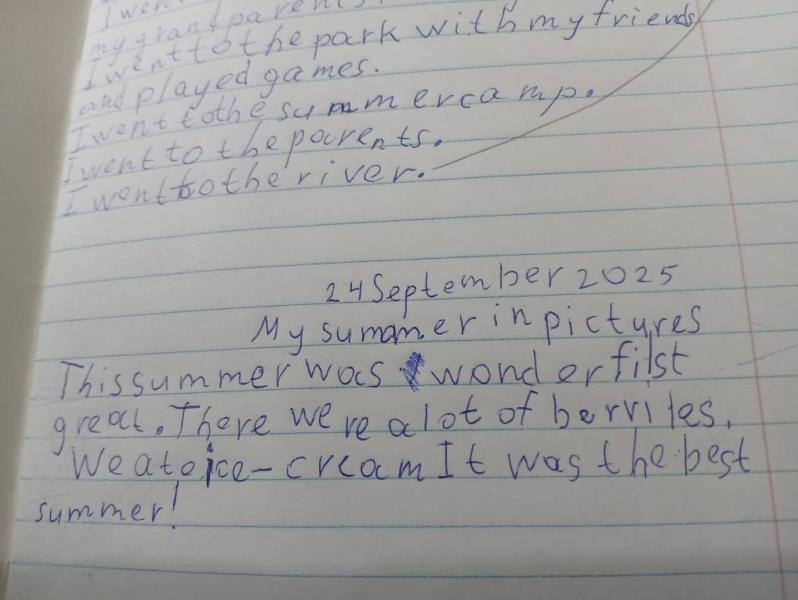 I wen
my grandparents.
I went to the park with my friends
and played games.
I went to the summer camp.
I went to the parents.
I went to the river.
24 September 2025
My summer in pictures
This summer was wonderfilst
great. There were a lot of berriles.
We ate ice-cream It was the best
summer!